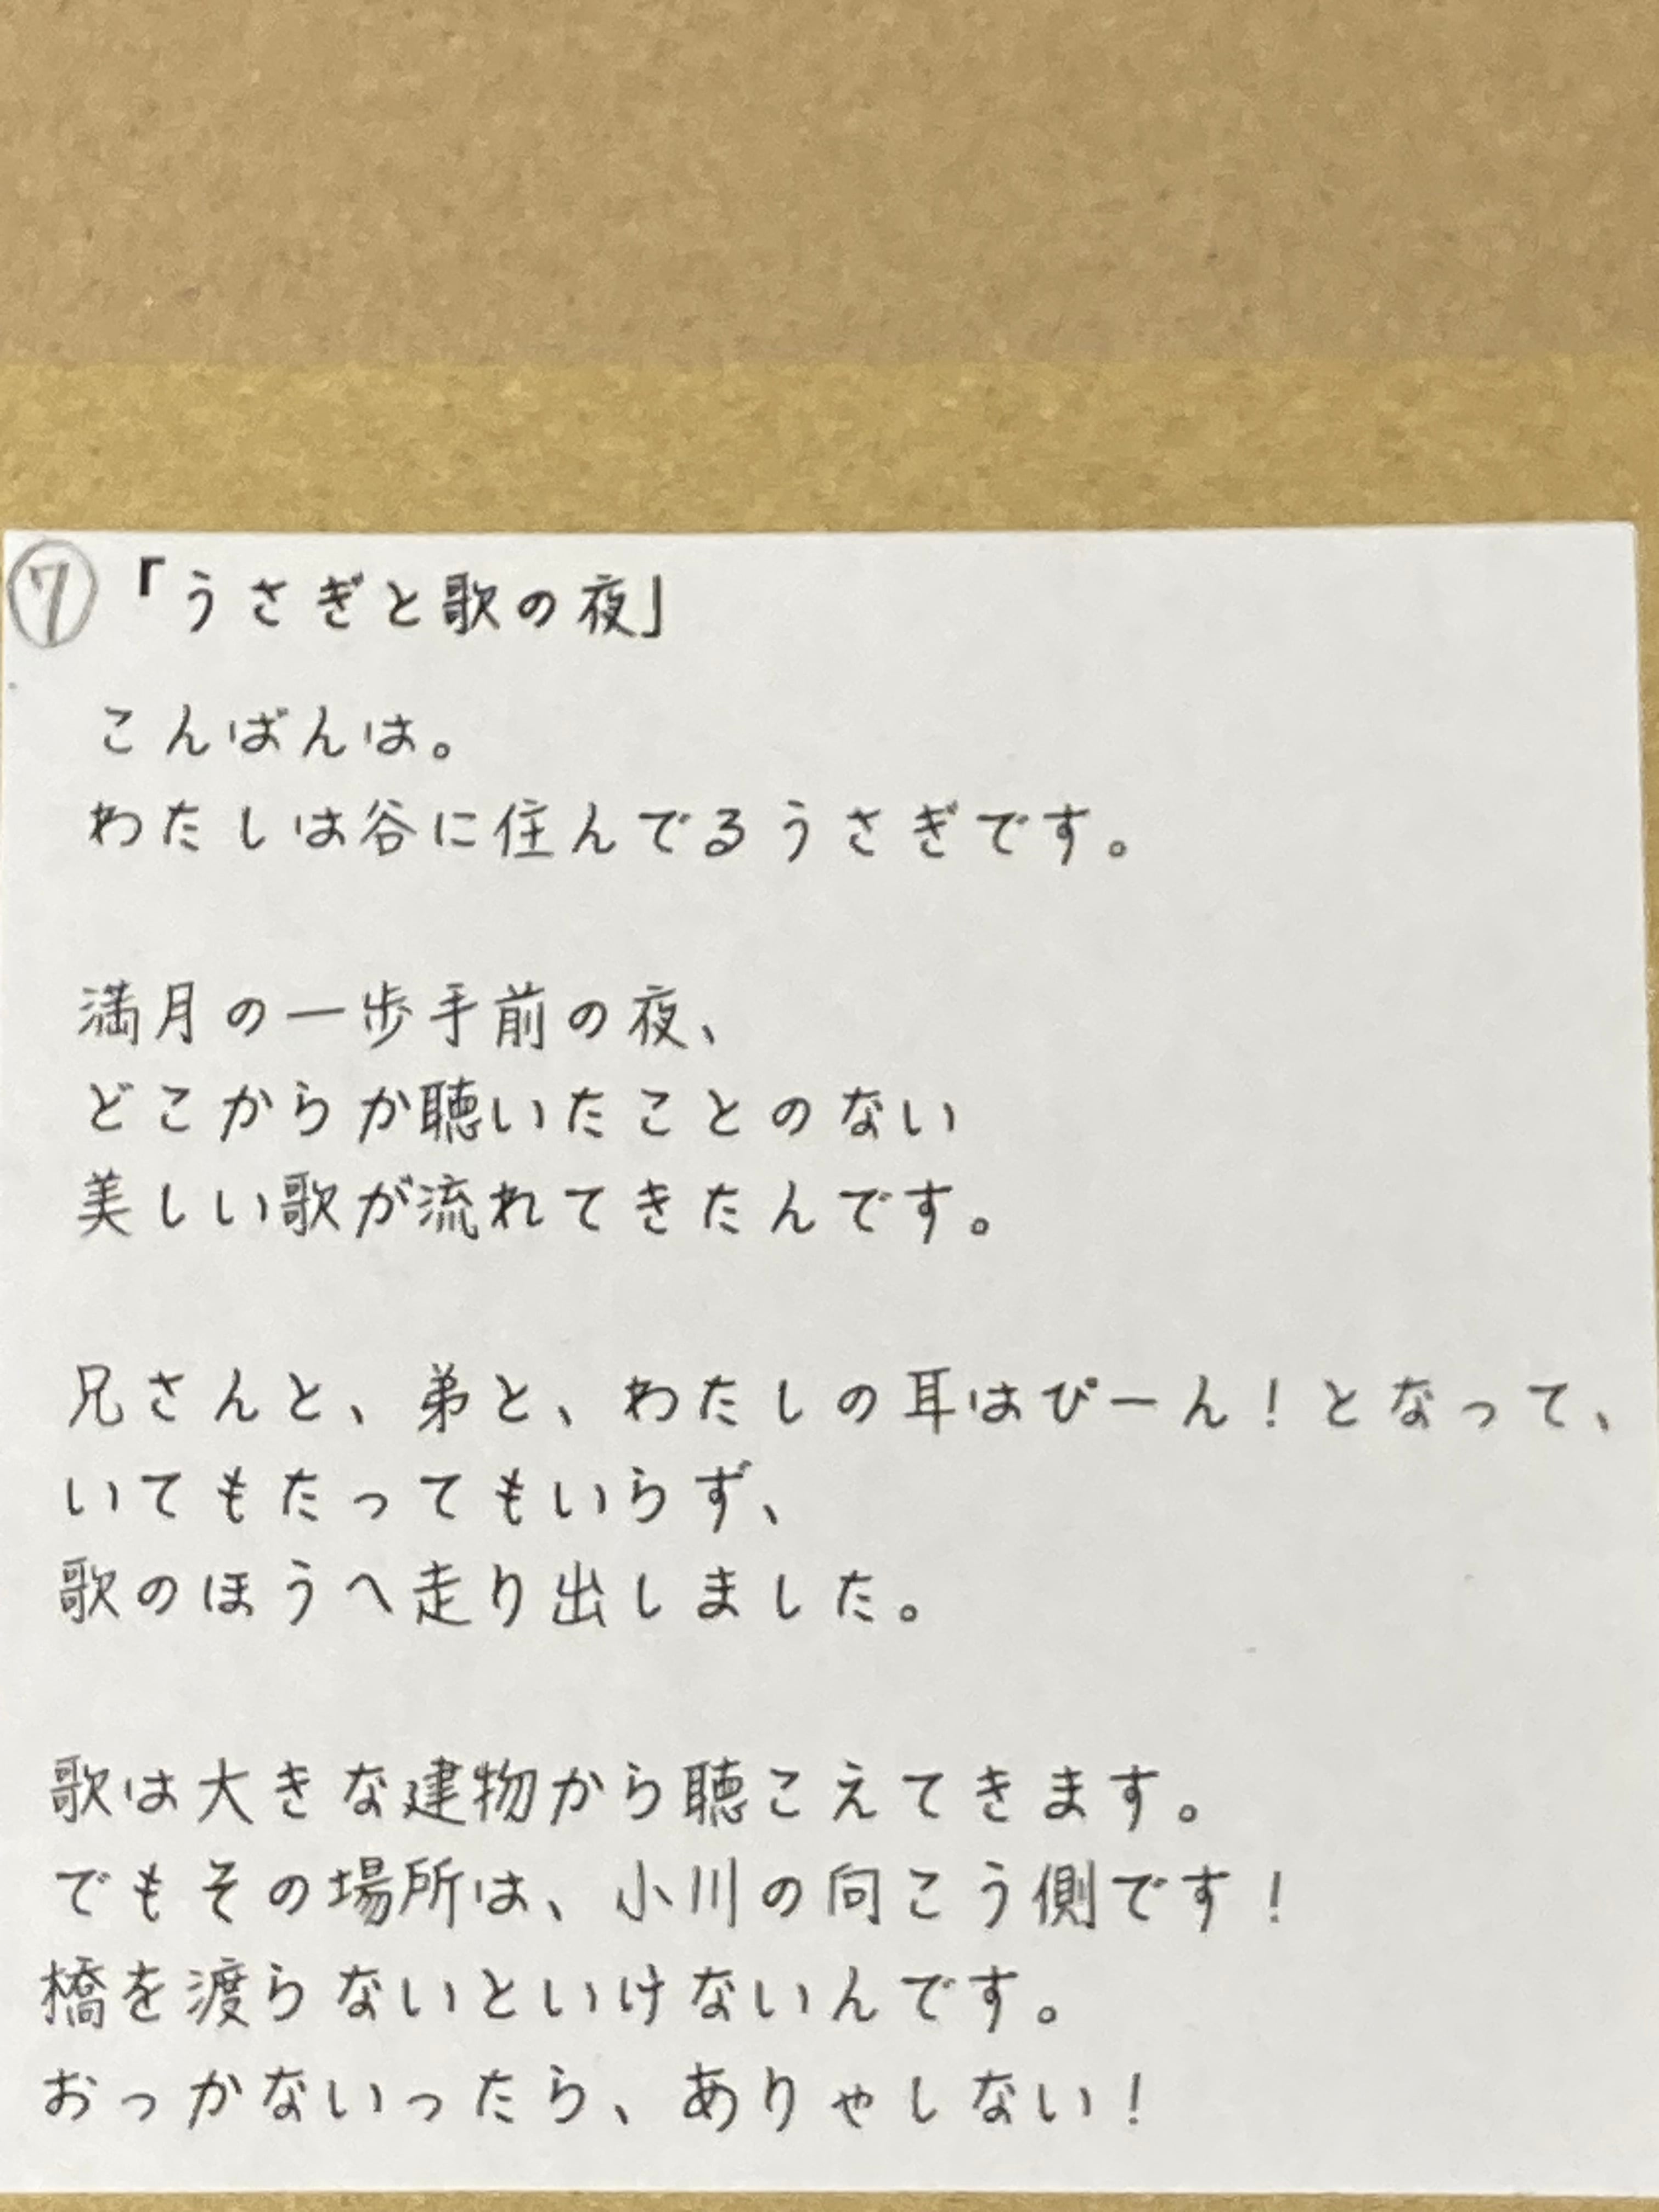 ⑦「うさぎと歌の夜」
こんばんは。
わたしは谷に住んでるうさぎです。
満月の一歩手前の夜、
どこからか聴いたことのない
美しい歌が流れてきたんです。
兄さんと、弟と、わたしの耳はぴーん！となって、
いてもたってもいらず、
歌のほうへ走り出しました。
歌は大きな建物から聴こえてきます。
でもその場所は、小川の向こう側です！
橋を渡らないといけないんです。
おっかないったら、ありゃしない！